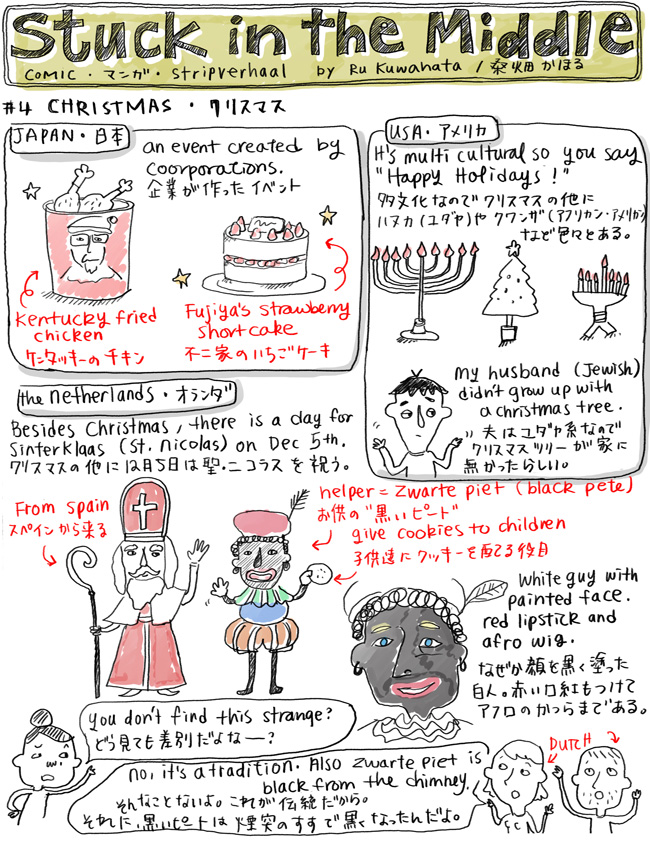 Stuck in the Middle
COMIC・マンガ・Stripverhaal by Ru Kuwahata / 桑畑かほる
#4 CHRISTMAS・クリスマス
JAPAN・日本
an event created by
Coorporations.
企業が作ったイベント
Kentucky fried
chicken
ケンタッキーのチキン
Fujiya's strawberry
shortcake
不二家のいちごケーキ
USA・アメリカ
It's multi cultural so you say
"Happy Holidays!"
多文化なのでクリスマスの他に
ハヌカ(ユダヤ)やクワンザ(アフリカン・アメリカン)
など色々とある。
my husband (Jewish)
didn't grow up with
a christmas tree.
夫はユダヤ系なので
クリスマスツリーが家に
無かったらしい。
the netherlands・オランダ
Besides Christmas, there is a day for
Sinterklaas (St. Nicolas) on Dec 5th.
クリスマスの他に12月5日は聖.ニコラスを祝う。
From spain
スペインから来る
helper = zwarte piet (black pete)
お供の"黒いピート"
give cookies to children
子供達にクッキーを配る役目
White guy with
painted face.
red lipstick and
afro wig.
なぜか顔を黒く塗った
白人。赤い口紅もつけて
アフロのかつらまである。
you don't find this strange?
どう見ても差別だよな―?
DUTCH
no, it's a tradition. Also zwarte piet is
black from the chimney.
そんなことないよ。これが伝統だから。
それに、黒いピートは煙突のすすで黒くなったんだよ。